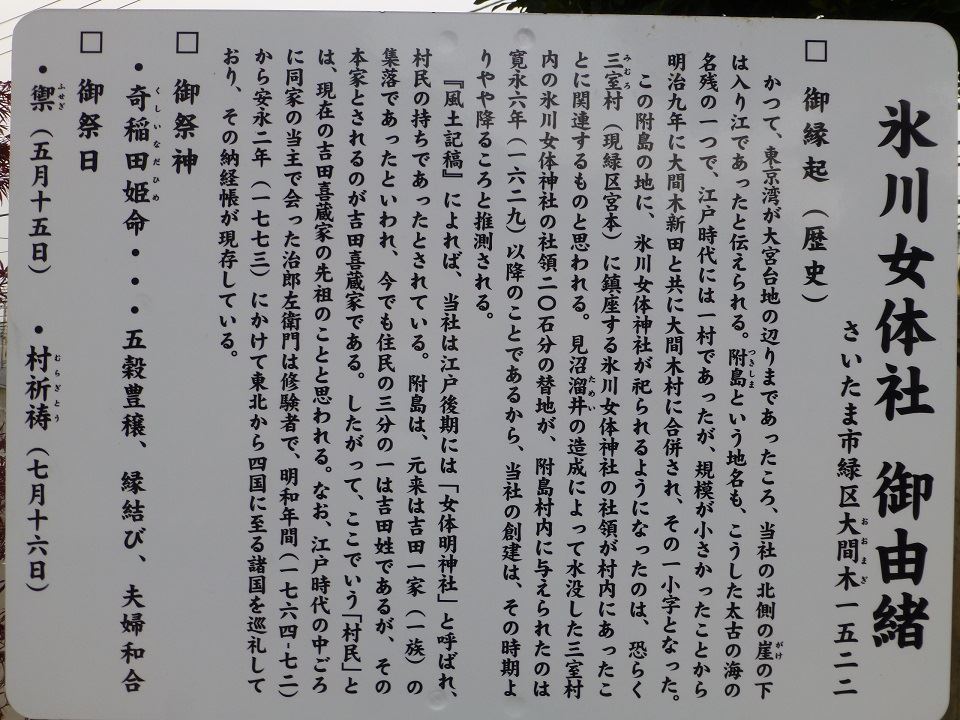 氷川女体社　御由緒
さいたま市緑区大間木一五二二
おおまぎ
□ 御縁起（歴史）
かつて、東京湾が大宮台地の辺りまであったころ、当社の北側の崖の下
がけ
は入り江であったと伝えられる。附島という地名も、こうした太古の海の
つきしま
名残の一つで、江戸時代には一村であったが、規模が小さかったことから
明治九年に大間木新田と共に大間木村に合併され、その一小字となった。
この附島の地に、氷川女体神社が祀られるようになったのは、恐らく
三室村（現緑区宮本）に鎮座する氷川女体神社の社領が村内にあったこ
みむろ
とに関連するものと思われる。見沼溜井の造成によって水没した三室村
ためい
内の氷川女体神社の社領二〇石分の替地が、附島村内に与えられたのは
寛永六年（一六二九）以降のことであるから、当社の創建は、その時期よ
りやや降るころと推測される。
『風土記稿』によれば、当社は江戸後期には「女体明神社」と呼ばれ、
村民の持ちであったとされている。附島は、元来は吉田一家（一族）の
集落であったといわれ、今でも住民の三分の一は吉田姓であるが、その
本家とされるのが吉田喜蔵家である。したがって、ここでいう「村民」と
は、現在の吉田喜蔵家の先祖のことと思われる。なお、江戸時代の中ごろ
に同家の当主で会った治郎左衛門は修験者で、明和年間（一七六四-七二）
から安永二年（一七七三）にかけて東北から四国に至る諸国を巡礼して
おり、その納経帳が現存している。
□ 御祭神
・奇稲田姫命・・・五穀豊穣、縁結び、夫婦和合
くしいなだひめ
□ 御祭日
・禦（五月十五日）　・村祈祷（七月十六日）
ふせぎ　むらぎとう